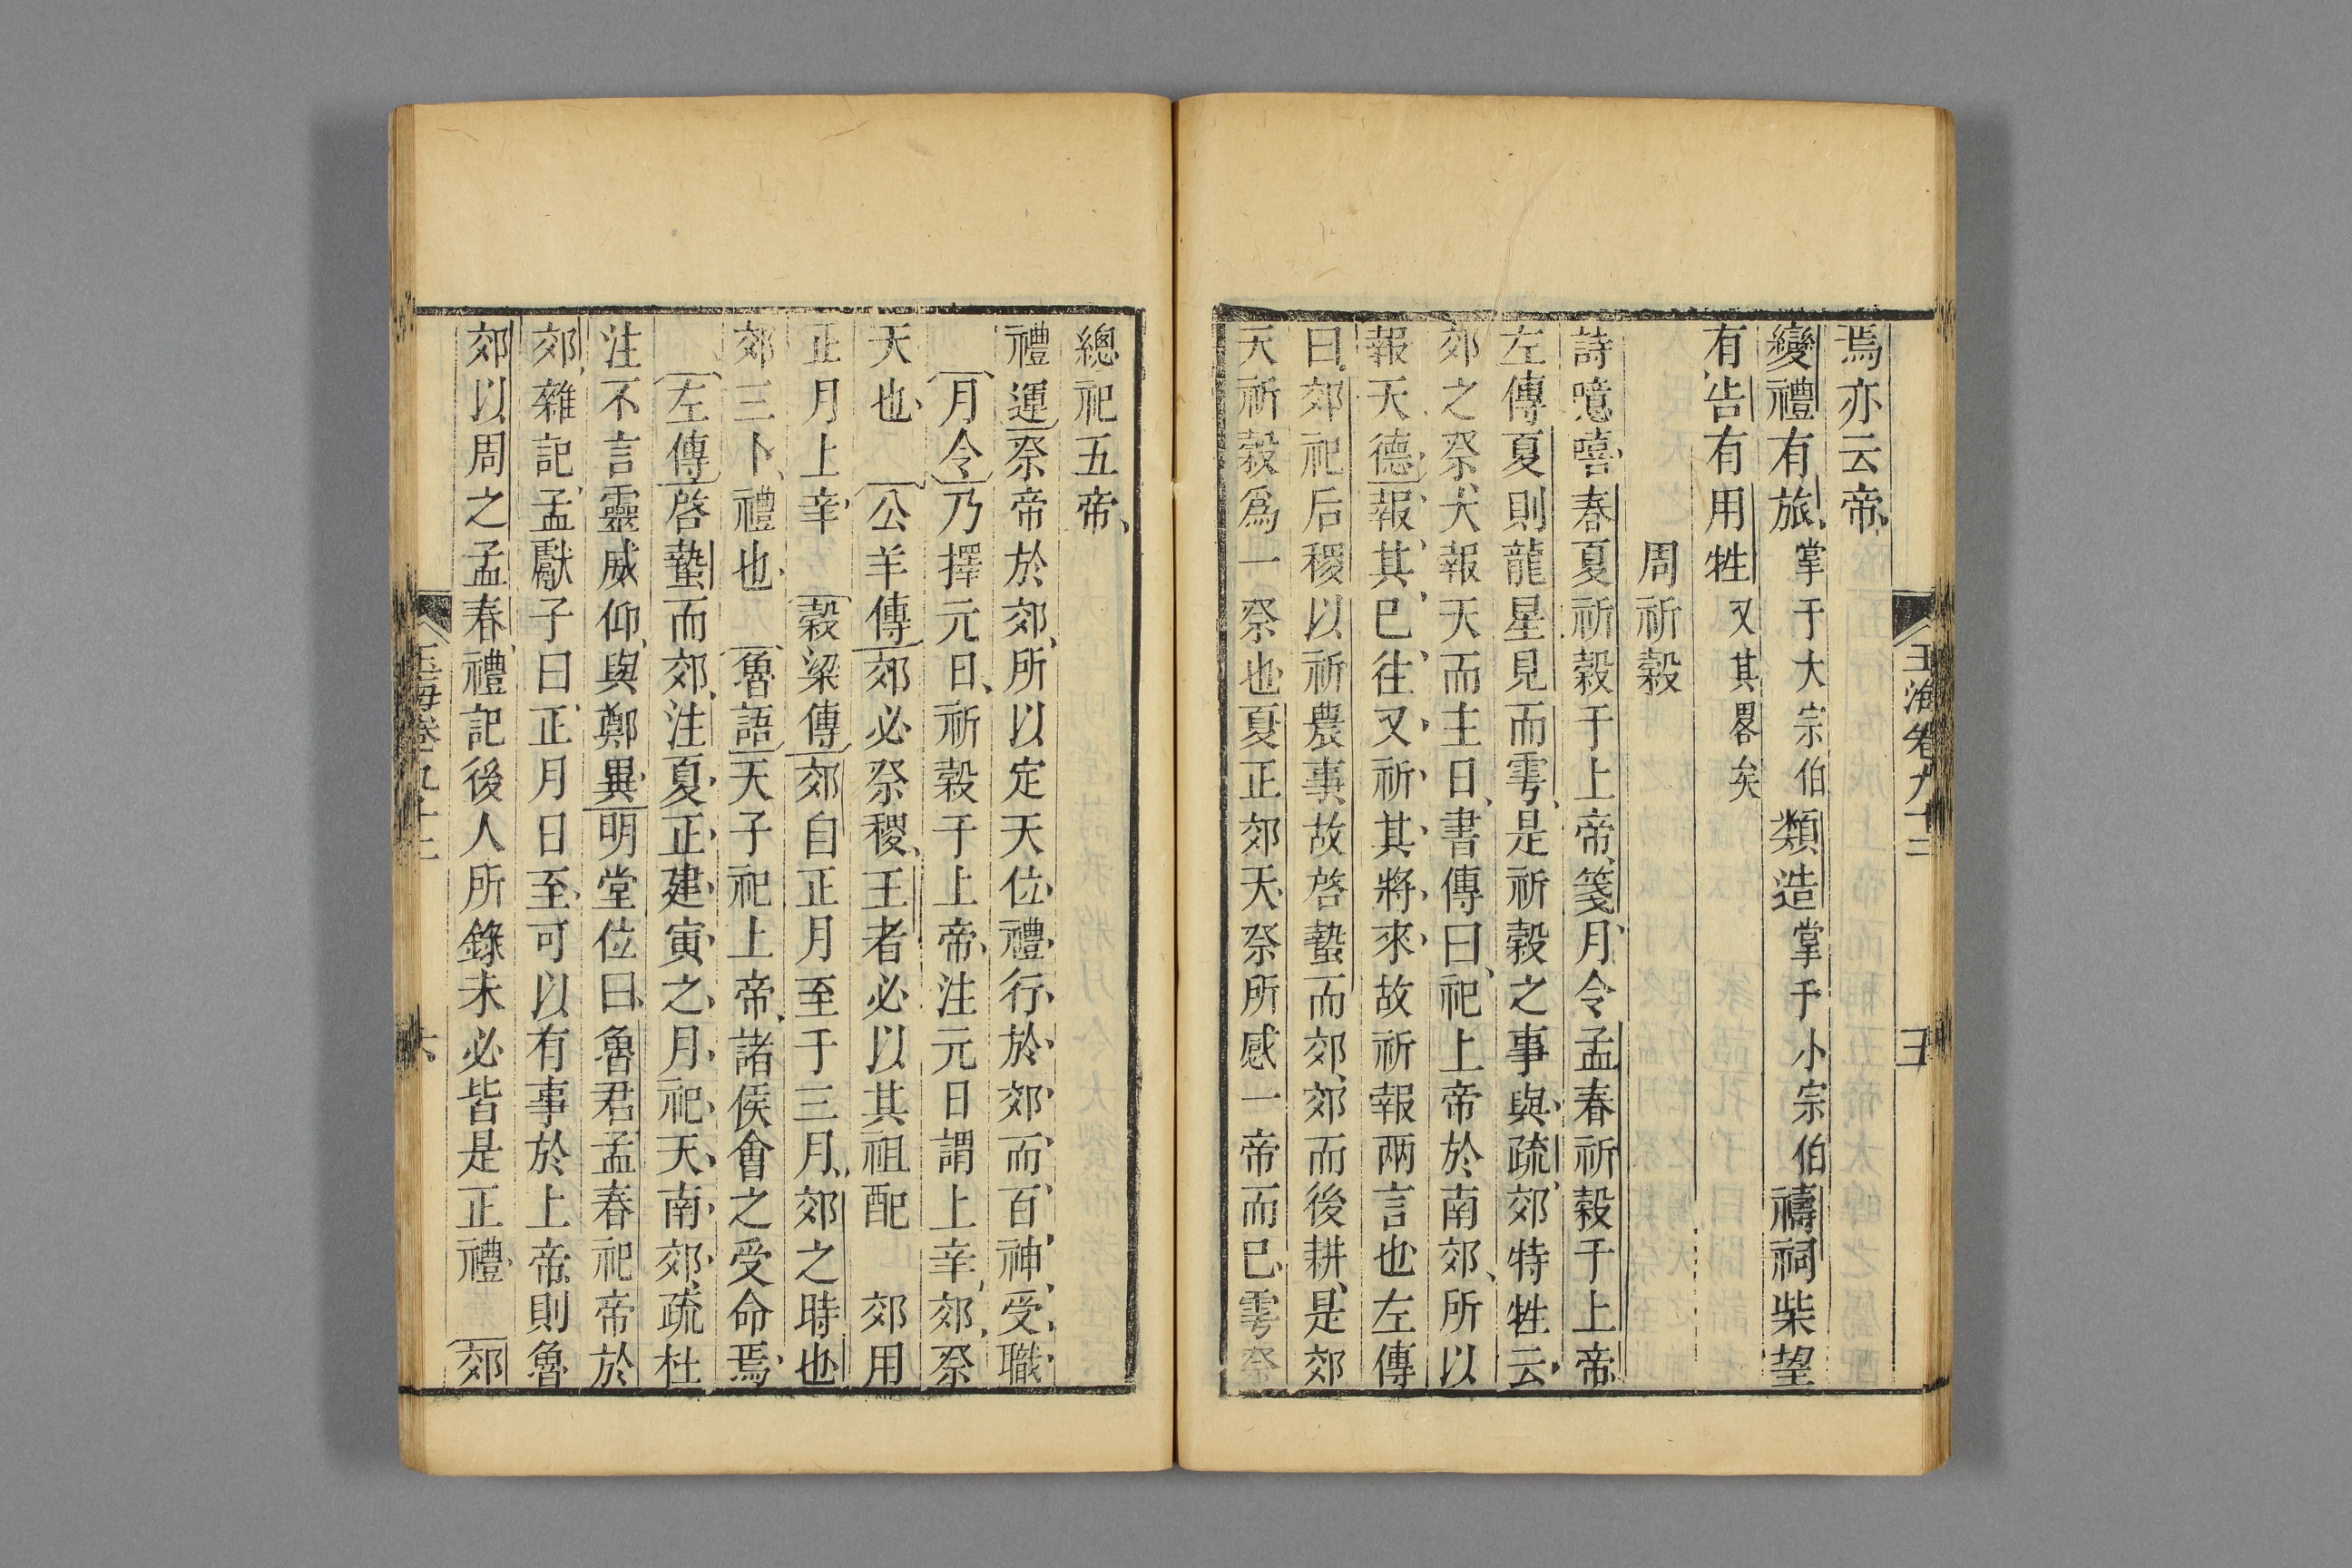 玉海卷九十三
五
焉亦云帝、
變禮有旅、掌于大宗伯類造掌于小宗伯禱祠柴望
有告有用牲又其畧矣
周祈穀
詩噫嘻春夏祈穀于上帝、箋月令孟春祈穀于上帝
左傳夏則龍星見而雩、是祈穀之事與、疏、郊特牲云、
郊之祭、大報天而主日、書傳曰、祀上帝於南郊、所以
報天德、報其巳往又祈其將來故祈報兩言也左傳
曰、郊祀后稷以祈農事、故啓蟄而郊、郊而後耕、是郊
天祈穀爲一祭也夏正郊天祭所感一帝而巳雩祭
總祀五帝、
禮運祭帝於郊、所以定天位、禮行於郊而百神受職
月令乃擇元日、祈穀于上帝、注元日謂上辛、郊祭
天也、公羊傳郊必祭稷、王者必以其祖配 郊用
正月上辛、穀梁傳郊自正月至于三月、郊之時也
郊三卜、禮也、魯語天子祀上帝、諸侯會之受命焉、
左傳啓蟄而郊、注夏正建寅之月祀天南郊、疏杜
注不言靈威仰、與鄭異明堂位曰、魯君孟春祀帝於
郊、雜記、孟獻子曰、正月日至、可以有事於上帝、則魯
郊以周之孟春、禮記後人所錄未必皆是正禮、郊
玉海卷九十三
六